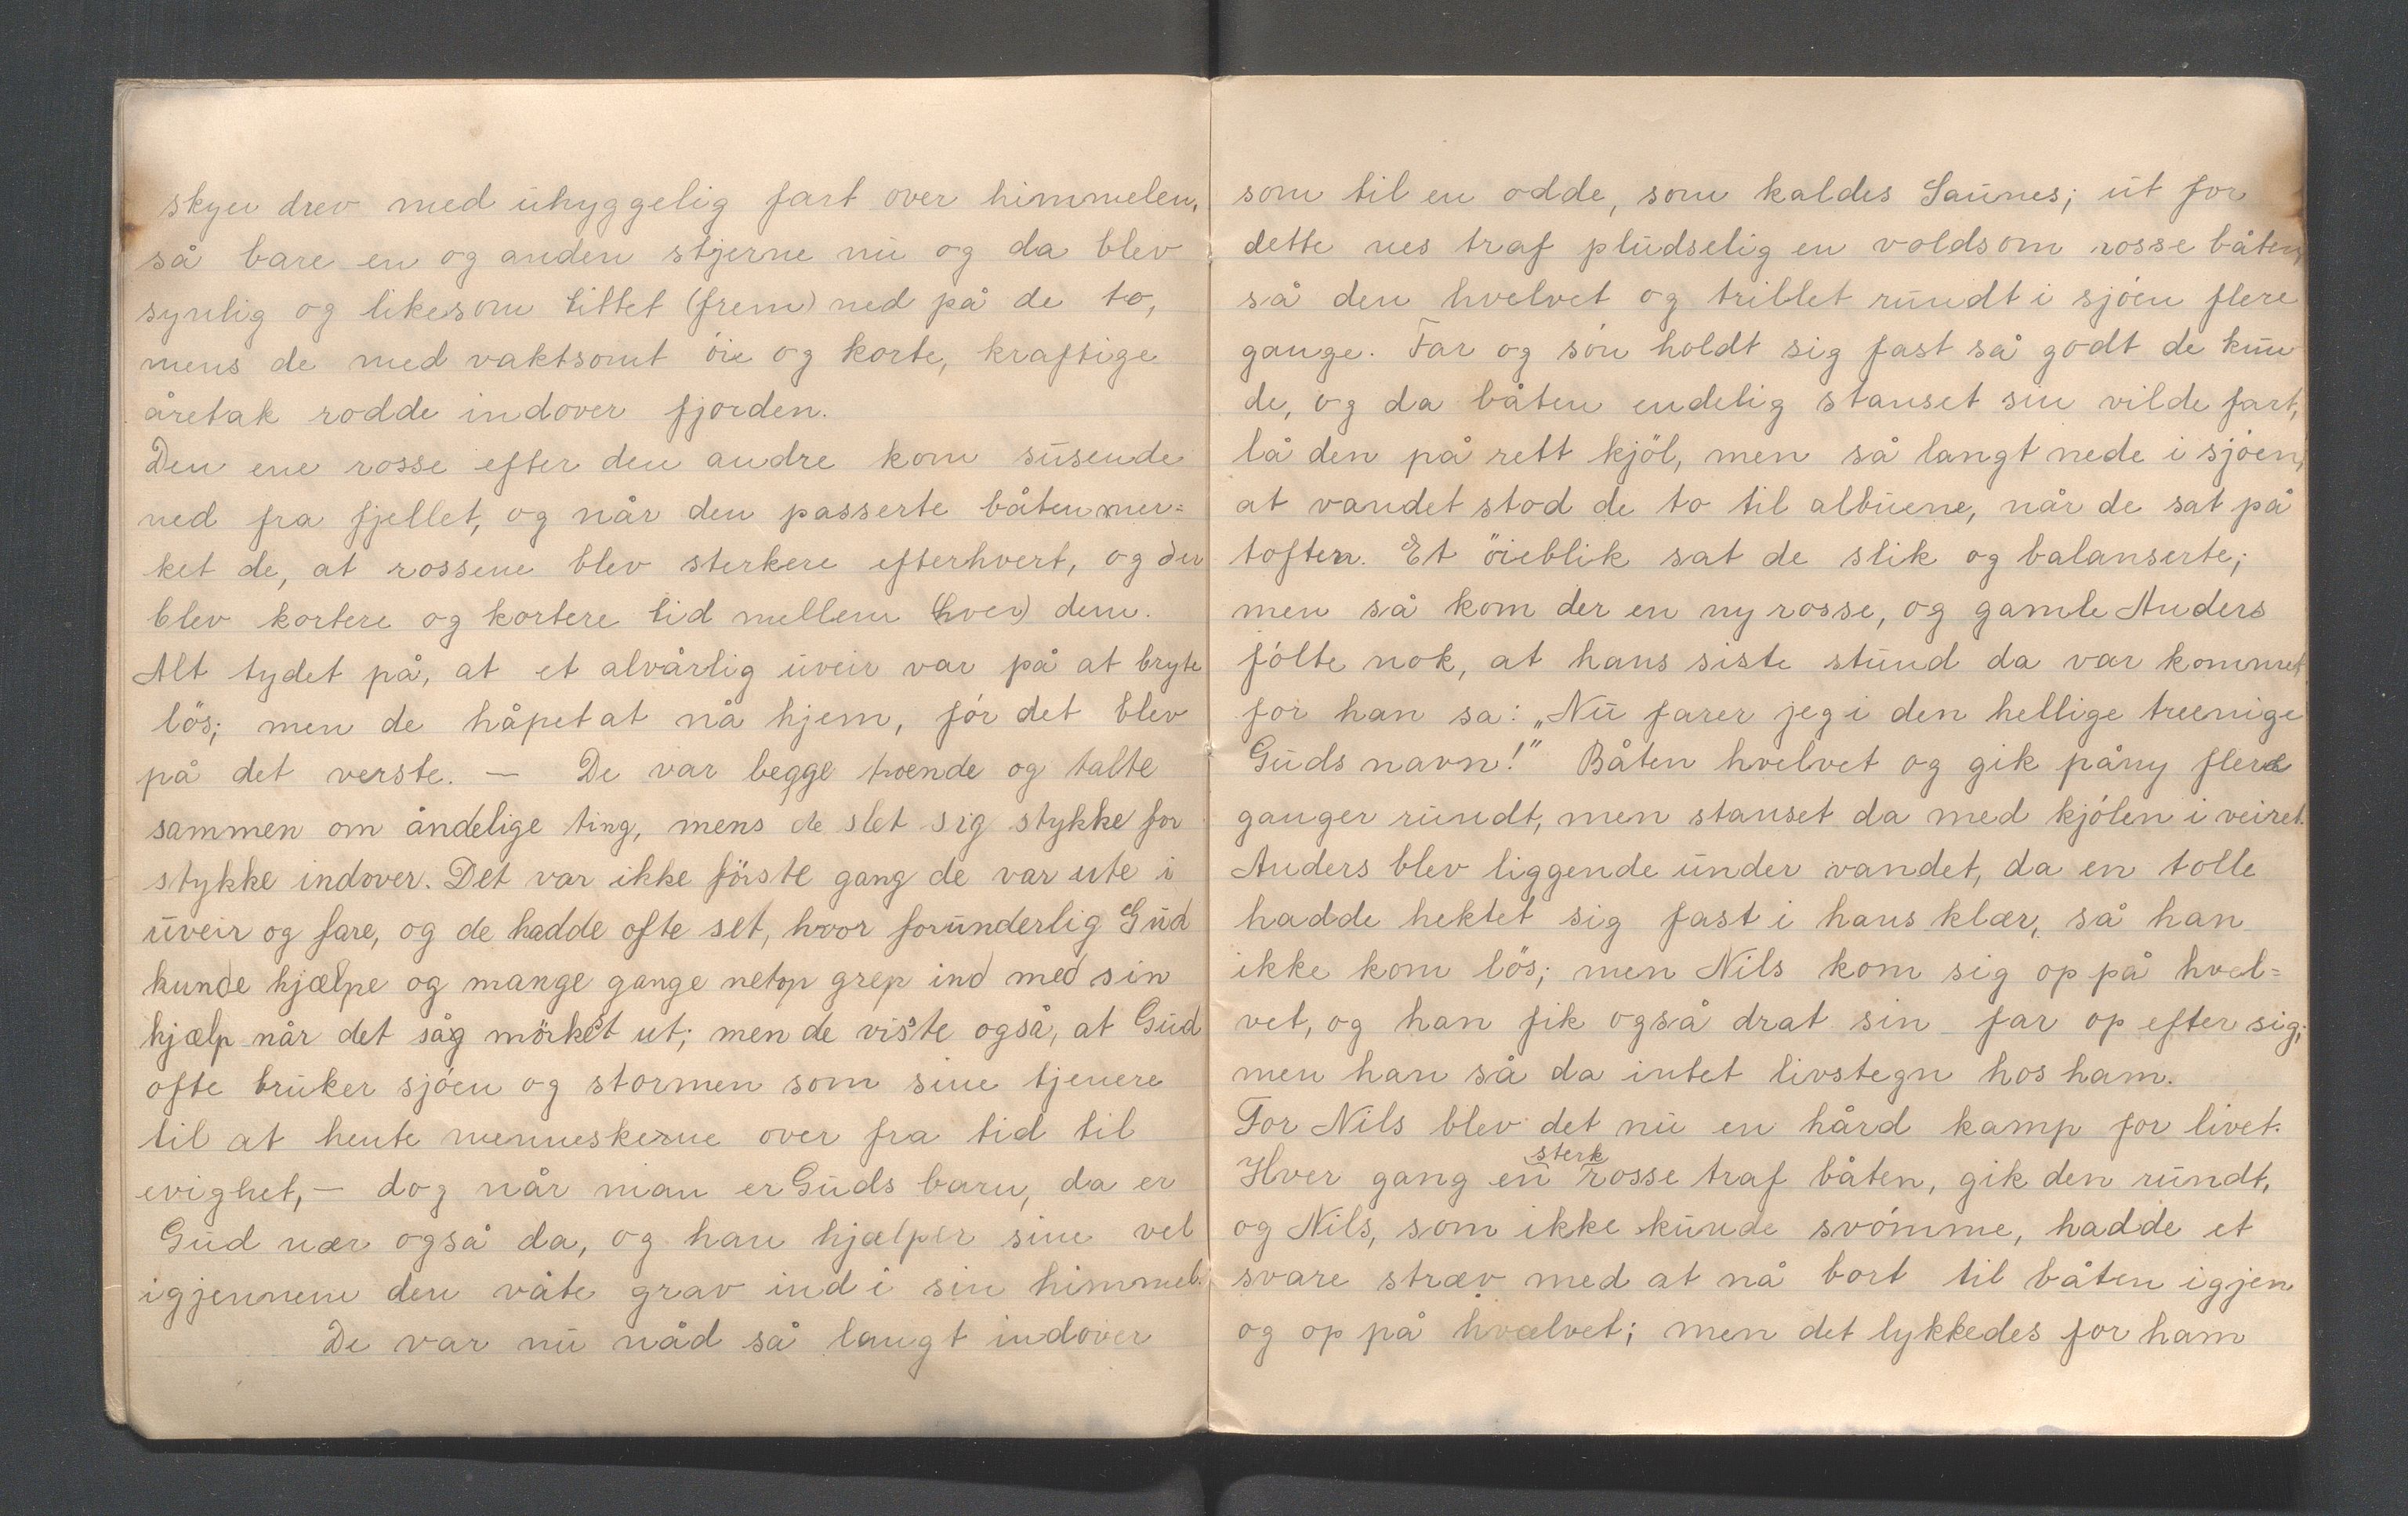 skyen drev med uhyggelig fart over himmelen,
så bare en og anden stjerne nu og da blev
synlig og likesom tittet (frem) ned på de to,
mens de med vaktsomt öie og korte, kraftige
åretak rodde indover fjorden.
Den ene rosse efter den andre kom susende
ned fra fjellet, og når den passerte båten mer=
ket de, at rossene blev sterkere efterhvert, og der
blev kortere og kortere tid mellem (hver) dem.
Alt tydet på, at et alvårlig uveir var på at bryte
lös; men de håpet at nå hjem, för det blev
på det verste. — De var begge troende og talte
sammen om åndelige ting, mens de slet sig stykke for
stykke indover. Det var ikke förste gang de var ute i
uveir og fare, og de hadde ofte set, hvor forunderlig Gud
kunde hjælpe og mange gange netop grep ind med sin
hjælp når det såg mörkest ut; men de visste også, at Gud
ofte bruker sjöen og stormen som sine tjenere
til at hente menneskerne over fra tid til
evighet, — dog når man er Guds barn, da er
Gud nær også da, og han hjælper sine vel
igjennem den våte grav ind i sin himmel.
De var nu nåd så langt indover
som til en odde, som kaldes Saunes; ut for
dette nes traf pludselig en voldsom rosse båten,
så den hvelvet og trillet rundt i sjöen flere
gange. Far og sön holdt sig fast så godt de kun
de, og da båten endelig stanset sin vilde fart,
lå den på rett kjöl, men så langt nede i sjöen,
at vandet stod de to til albuene, når de sat på
toften. Et öieblik sat de slik og balanserte;
men så kom der en ny rosse, og gamle Anders
fölte nok, at hans siste stund da var kommet
for han sa: „Nu farer jeg i den hellige treenige
Guds navn!" Båten hvelvet og gik påny flere
ganger rundt, men stanset da med kjölen i veiret.
Anders blev liggende under vandet, da en tolle
hadde hektet sig fast i hans klær, så han
ikke kom lös; men Nils kom sig op på hvel=
vet, og han fik også drat sin far op efter sig;
men han så da intet livstegn hos ham.
For Nils blev det nu en hård kamp for livet.
Hver gang en sterk rosse traf båten, gik den rundt,
og Nils, som ikke kunde svömme, hadde et
svare stræv med at nå bort til båten igjen
og op på hvælvet; men det lykkedes for ham